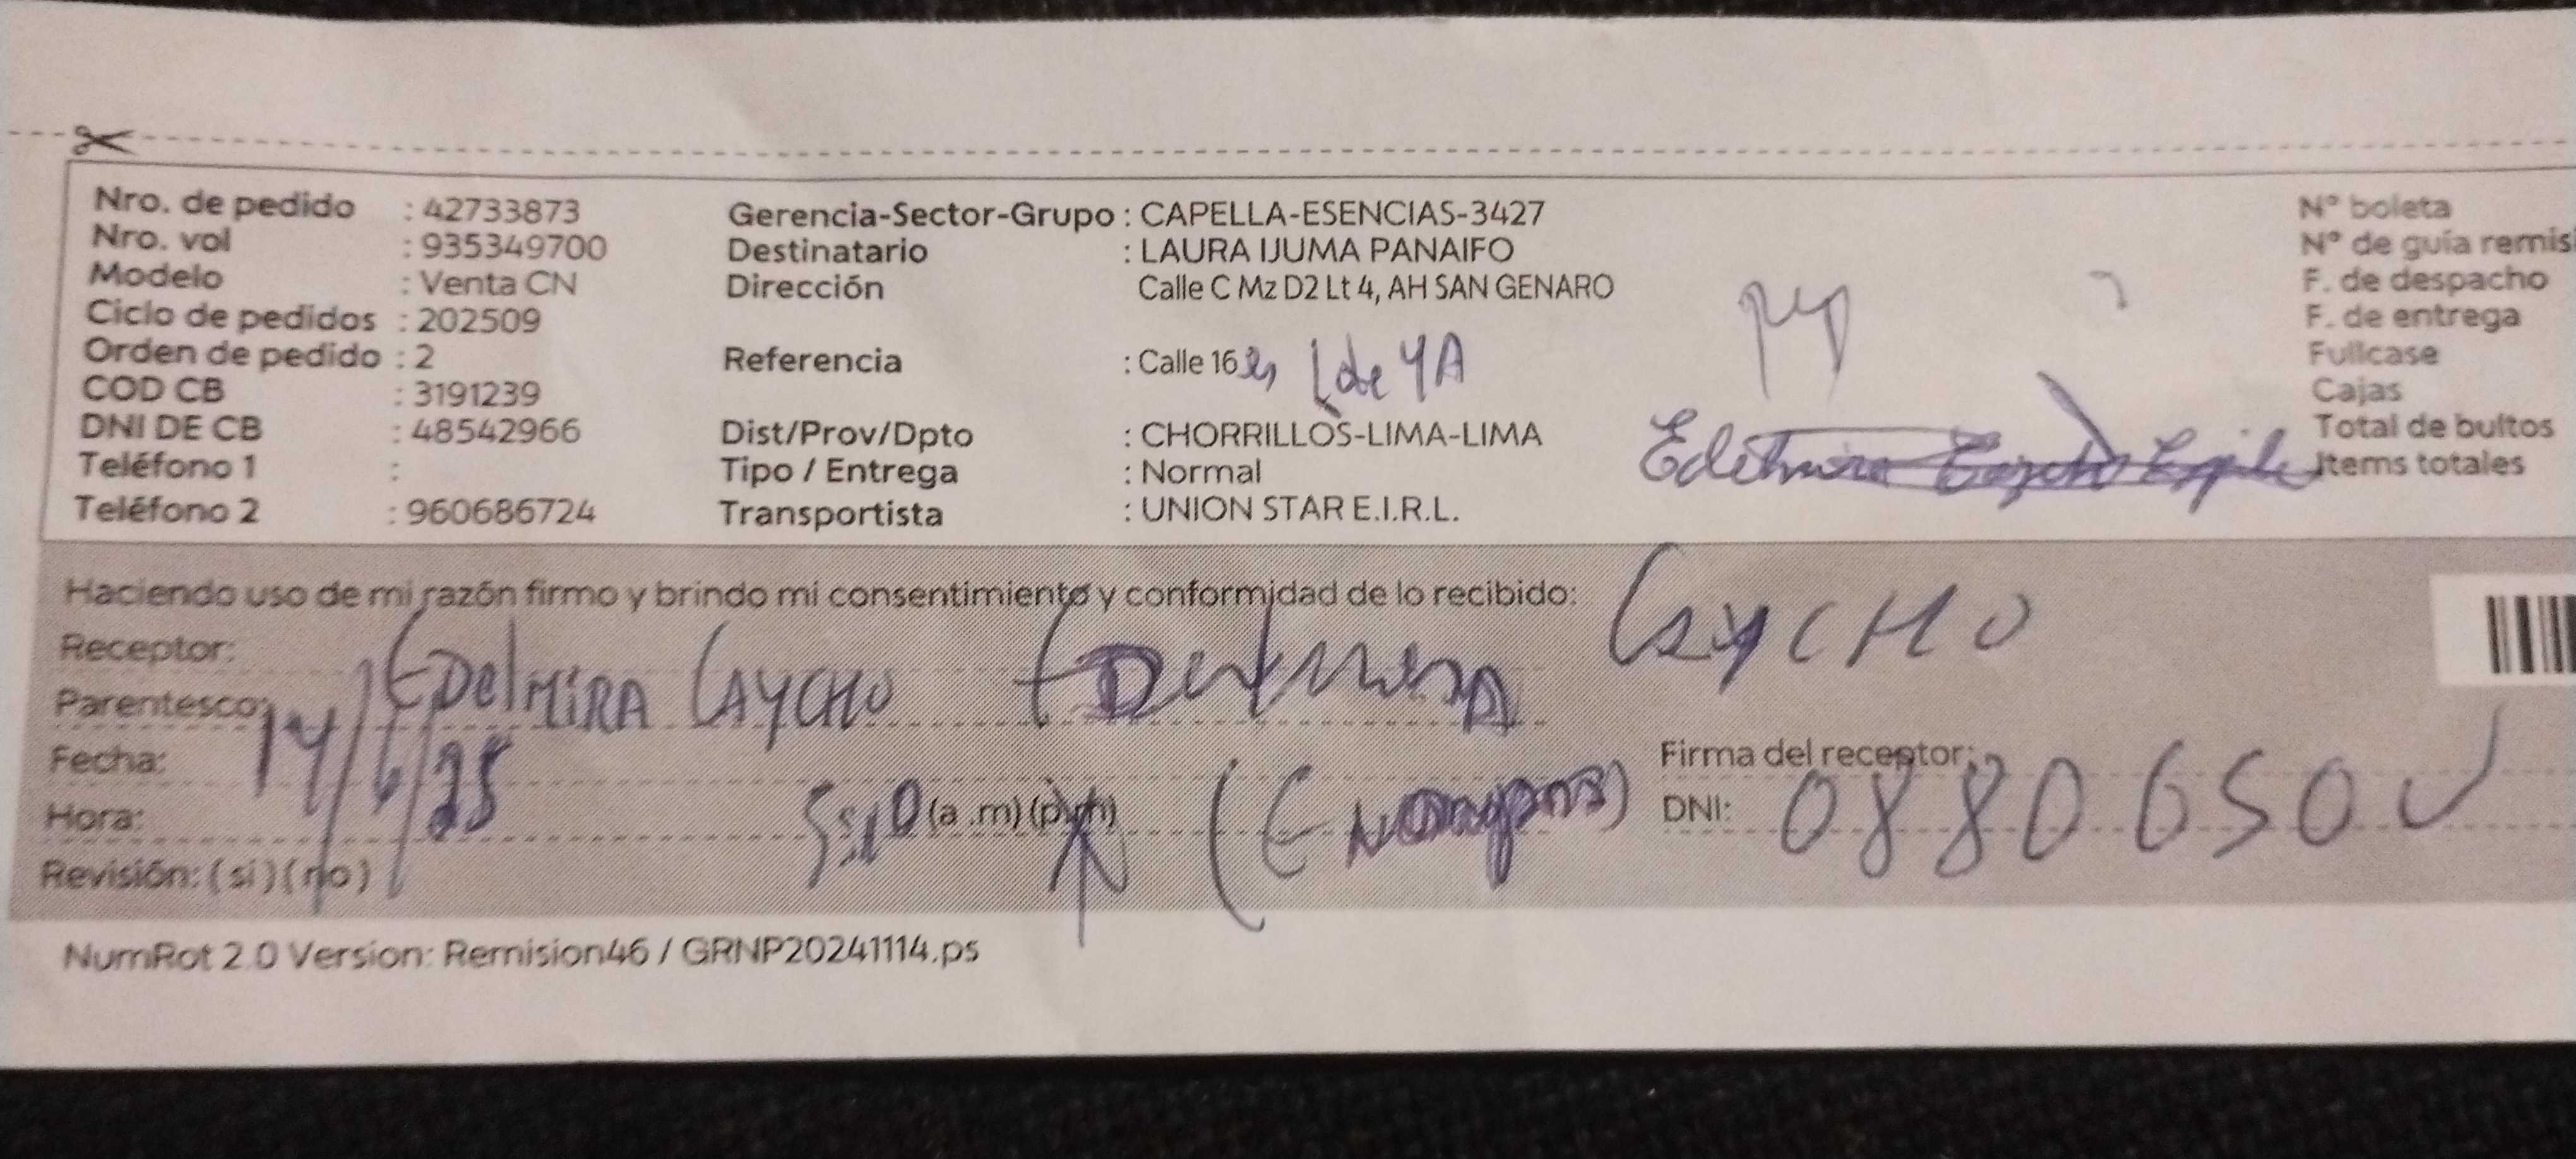 Nro. de pedido : 42733873
Nro. vol : 935349700
Modelo : Venta CN
Ciclo de pedidos : 202509
Orden de pedido : 2
COD CB : 3191239
DNI DE CB : 48542966
Teléfono 1 :
Teléfono 2 : 960686724
Gerencia-Sector-Grupo : CAPELLA-ESENCIAS-3427
Destinatario : LAURA IJUMA PANAIFO
Dirección Calle C Mz D2 Lt 4, AH SAN GENARO
Referencia : Calle 16
Dist/Prov/Dpto : CHORRILLOS-LIMA-LIMA
Tipo / Entrega : Normal
Transportista : UNION STAR E.I.R.L.
N° boleta
N° de guía remis
F. de despacho
F. de entrega
Fullcase
Cajas
Total de bultos
Items totales
Haciendo uso de mi razón firmo y brindo mi consentimiento y conformidad de lo recibido: CAYCHO
Receptor: EDelMiRA CAYCHO
Parentesco:
Fecha: 14/6/25
Hora: (a .m) (p.m)
Revisión: (si) (no)
Firma del receptor:
DNI: 0880650
NumRot 2.0 Version: Remision46 / GRNP20241114.ps